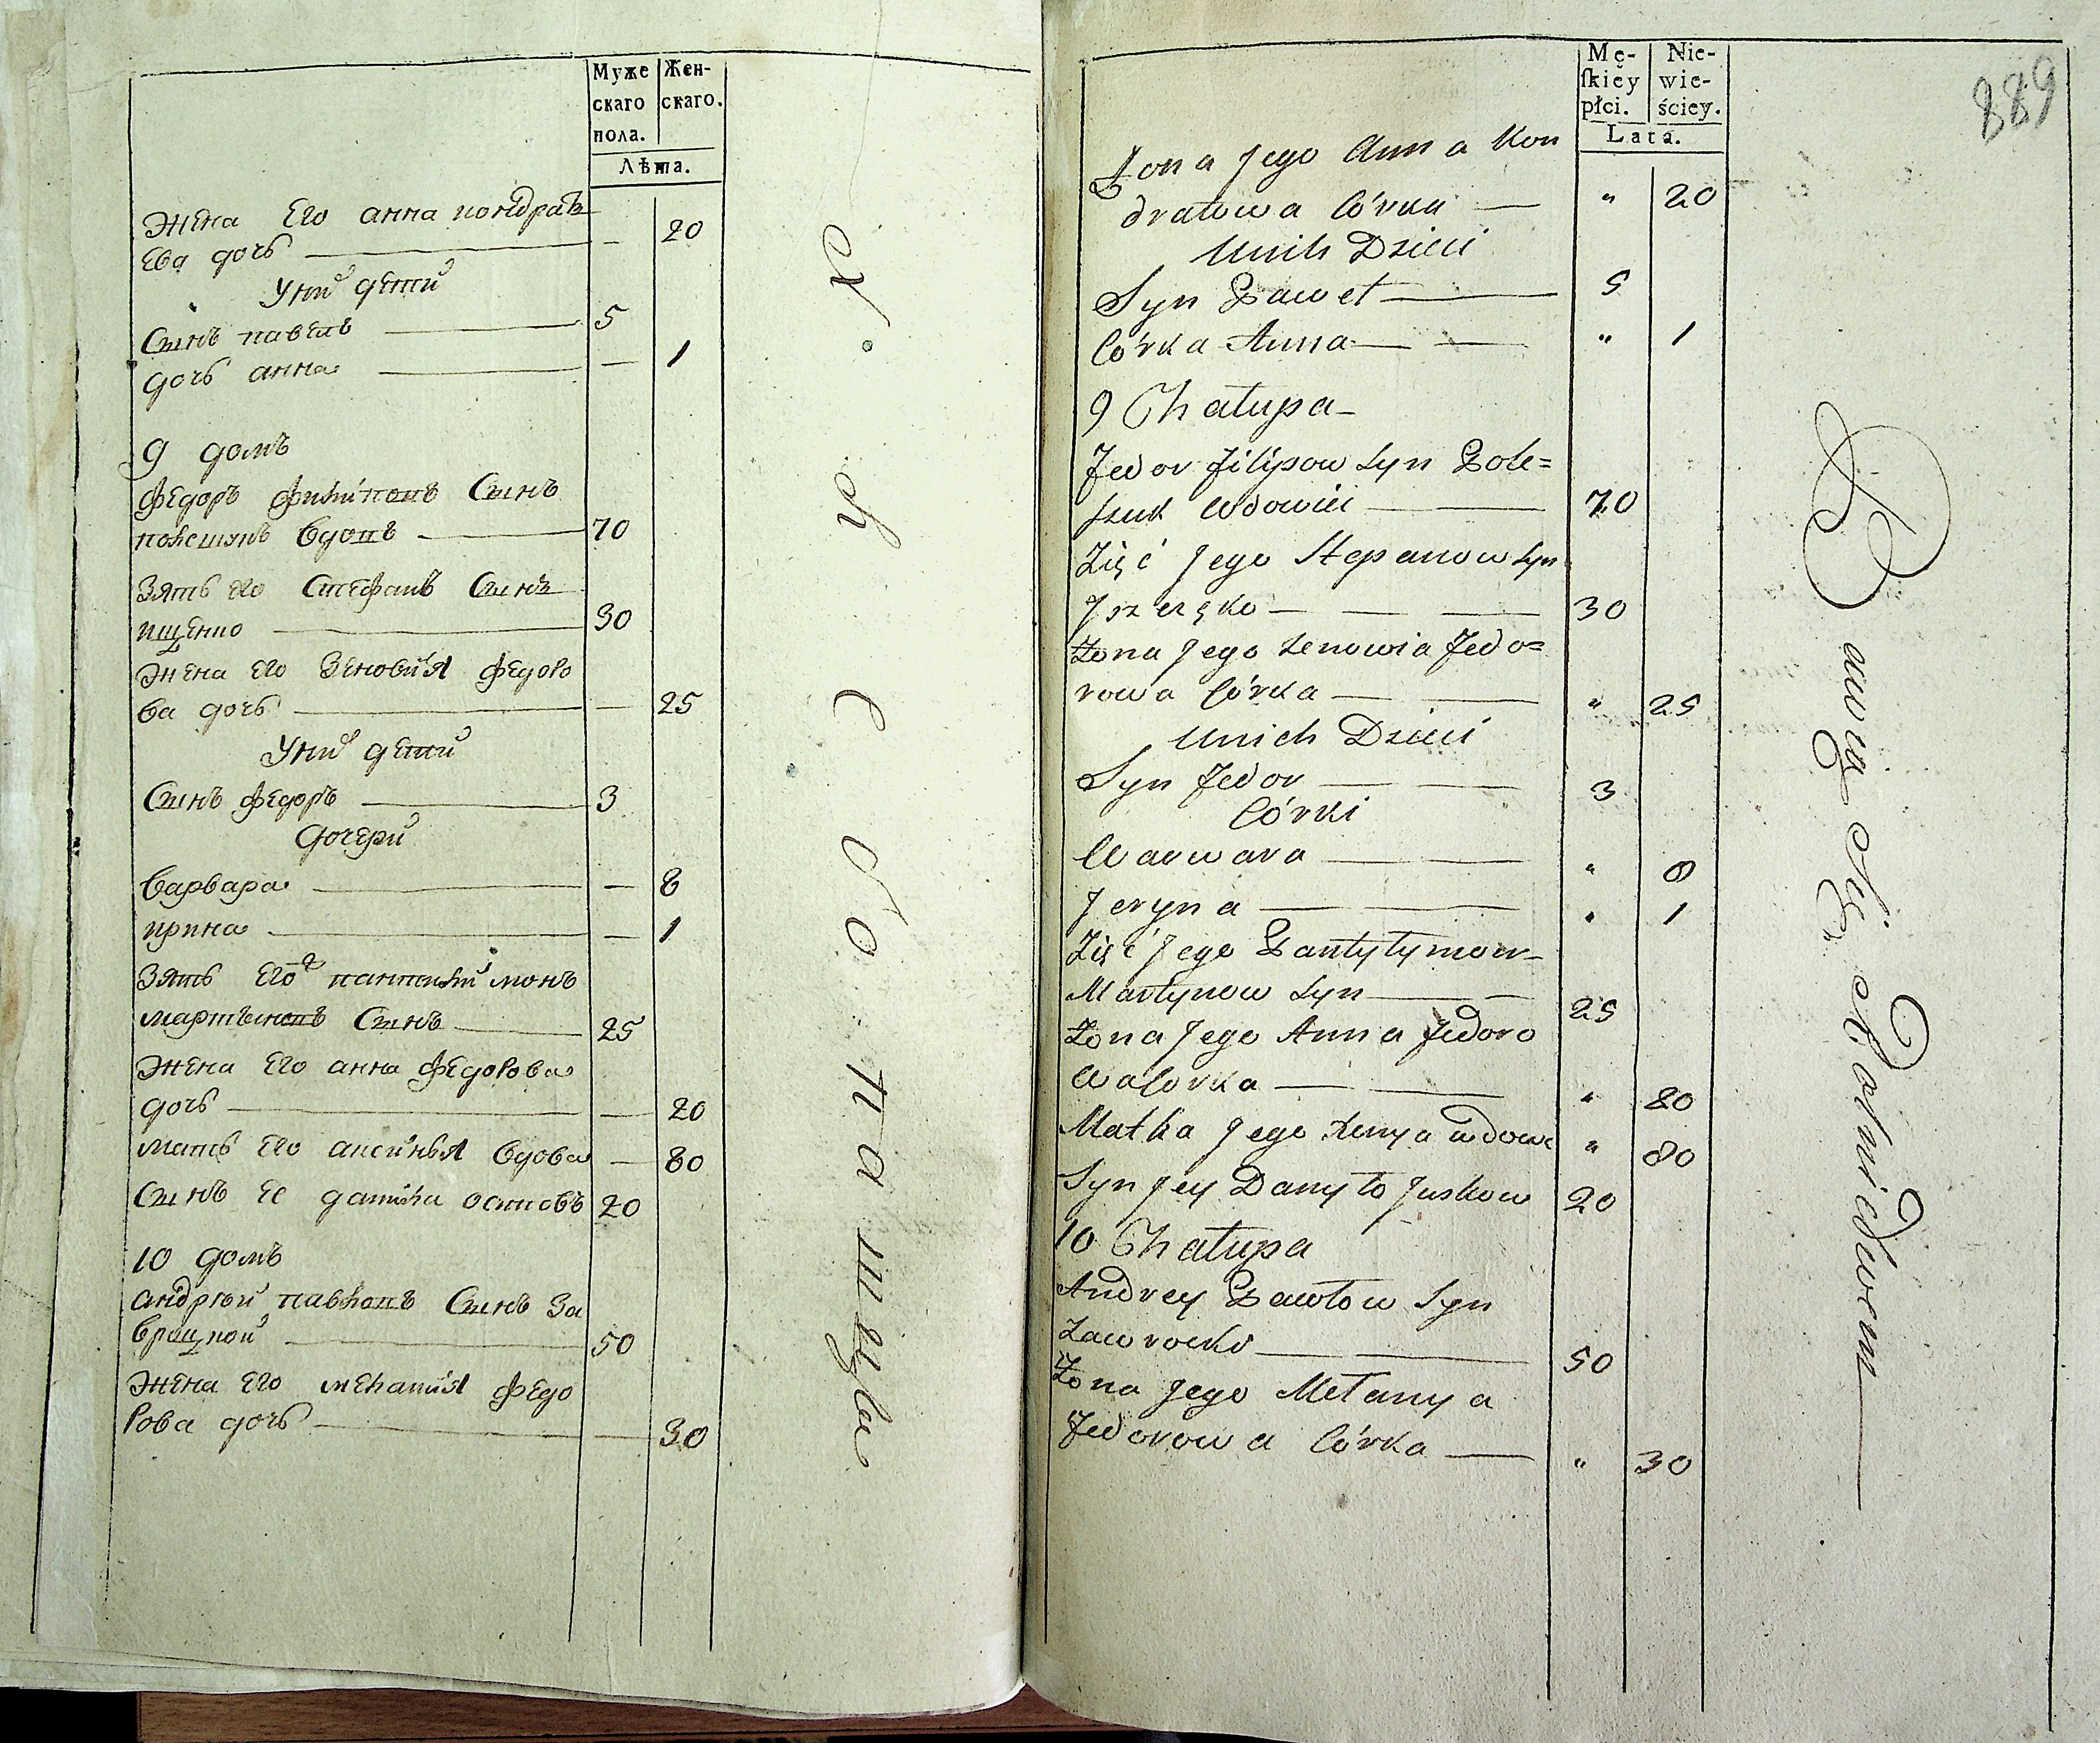 Муже
скаго
пола.
Жен-
скаго.
Лѣта.
жена его анна кондратъ
ева дочь — — 20
У них дети
Сынъ павелъ — 5
дочь анна — — 1
9 домъ
федоръ филиповъ Сынъ
полешукъ вдовъ — 70
Зять его Стефанъ Сынъ
ищенко — 30
жена его Зеновия федоро
ва дочь — — 25
У них дети
Сынъ федоръ — 3
дочери
варвара — — 8
ирина — — 1
Зять его 2 пантилимонъ
мартыновъ Сынъ — 25
жена его анна федорова
дочь — — 20
мать его аксинья вдова — 80
Сынъ ее данила 20
10 домъ
андрюй павловъ Сынъ за
вроцкой — 50
жена его мелания федо
рова дочь — — 30
Mę-
skiey
płci.
Nie-
wie-
ściey.
Lata.
889
Żona Jego Anna Kon
dratowa Córka — " 20
Unich Dzieci
Syn Paweł — 5
Córka Anna — — " 1
9 Chałupa
Fedor Filipow Syn Pole=
szuk Wdowiec — 70
Zięć Jego Stepanow Syn
— 30
Żona Jego Zenowia Fedo=
rowa Córka — " 25
Unich Dzieci
Syn Fedor — 3
Córki
Warwara — " 8
Jeryna — " 1
Zięć Jego Pantylymon
Martynow Syn — 25
Żona Jego Anna Fedoro
wa Corka — " 20
Matka Jego Xenya wdowa " 80
Syn Jey Danyło Juskow 20
10 Chałupa
Andrey Pawłow Syn
Zawrocki — 50
Żona Jego Mełanya
Fedorowa Córka — " 30